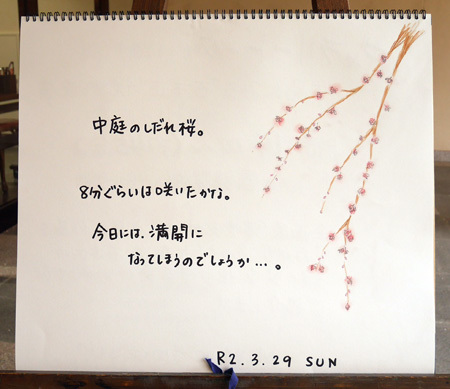 中庭のしだれ桜。
8分ぐらいは咲いたかな。
今日には、満開に
なってしまうのでしょうか…。
R2.3.29 SUN